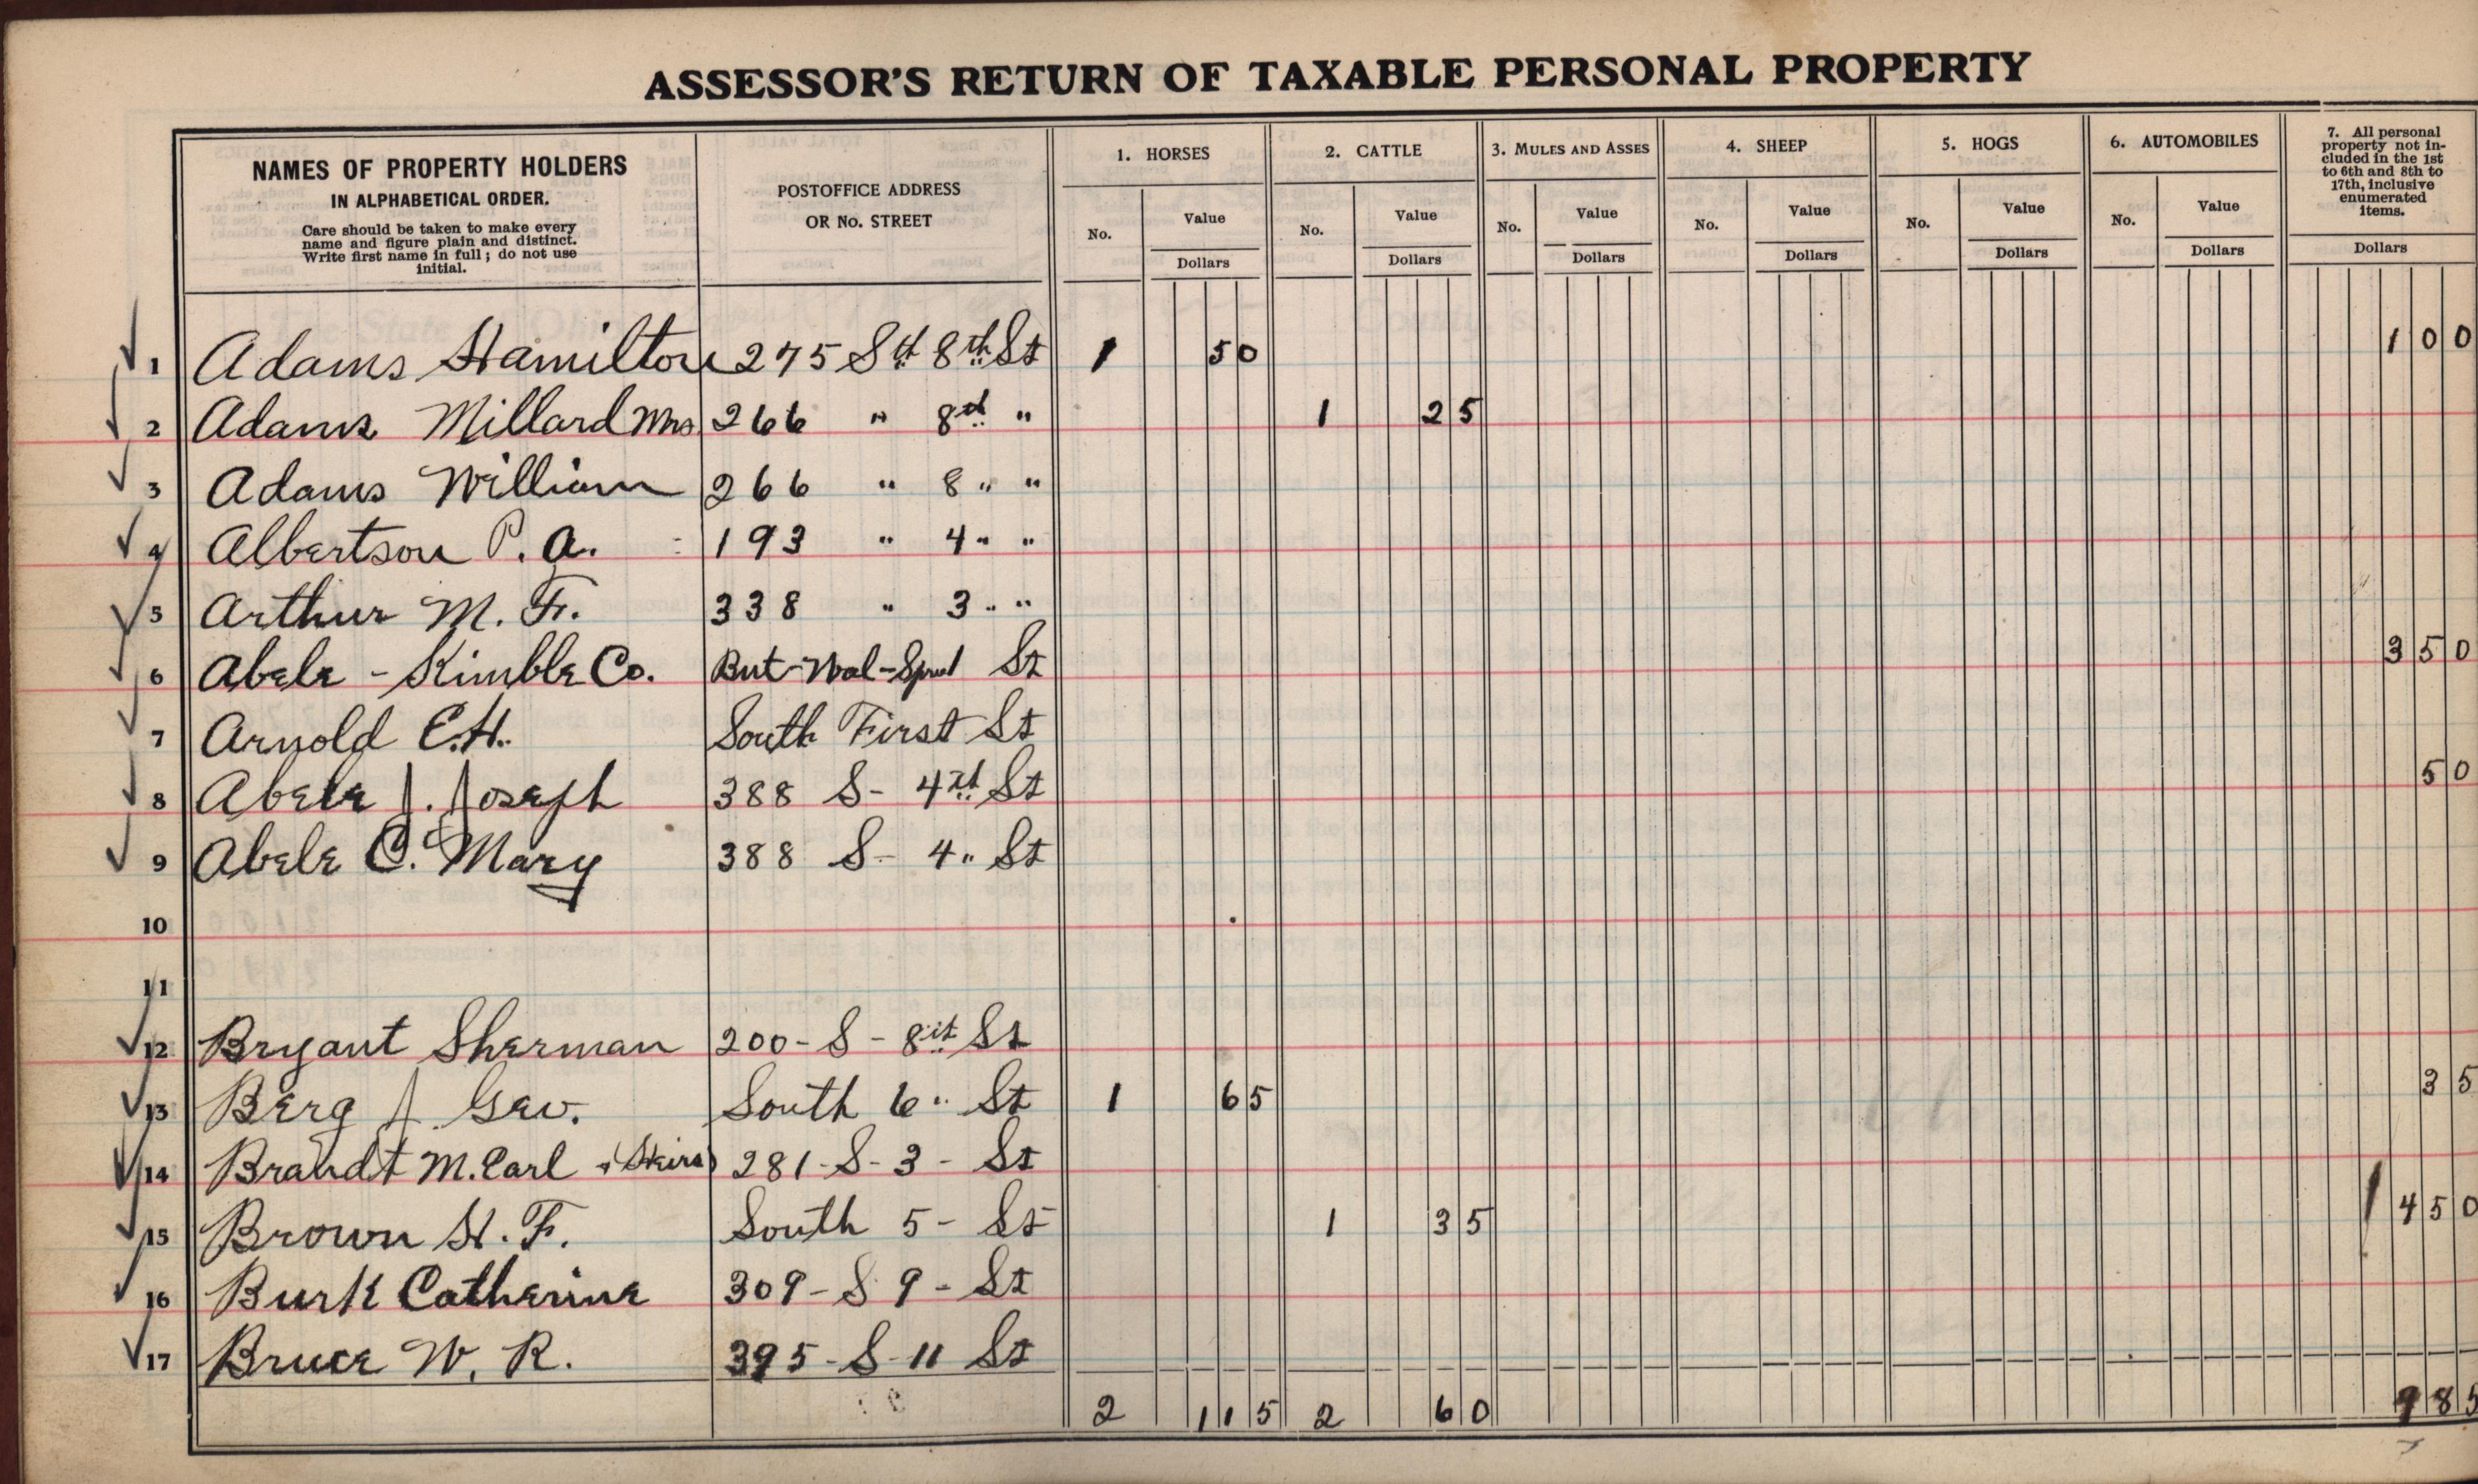 ASSESSOR'S RETURN OF TAXABLE PERSONAL PROPERTY
NAMES OF PROPERTY HOLDERS
IN ALPHABETICAL ORDER.
Care should be taken to make every
name and figure plain and distinct.
Write first name in full; do not use
initial.
POSTOFFICE ADDRESS
OR No. STREET
1. HORSES
No.
Value
Dollars
2. CATTLE
No.
Value
Dollars
3. MULES AND ASSES
No.
Value
Dollars
4. SHEEP
No.
Value
Dollars
5. HOGS
No.
Value
Dollars
6. AUTOMOBILES
No.
Value
Dollars
7. All personal
property not in-
cluded in the 1st
to 6th and 8th to
17th, inclusive
enumerated
items.
Dollars
1 Adams Hamilton 275 Sth 8th St 1 50 100
2 Adams Millard Mrs. 266 " 8th " 1 25
3 Adams William 266 " 8 " "
4 Albertson P. A. 193 " 4 " "
5 Arthur M. F. 338 " 3 " "
6 Abele - Kimble Co. But-Wal- St 350
7 Arnold E.H. South First St
8 Abele J. Joseph 388 S- 4th St 50
9 Abele C. Mary 388 S- 4 " St
10
11
12 Bryant Sherman 200 - S - 8th St
13 Berg J. Geo. South 6 " St 1 65 35
14 Brandt M. Carl (Heirs) 281 - S - 3 - St
15 Brown H. F. South 5 - St 1 35 450
16 Burk Catherine 309 - S 9 - St
17 Bruce W. R. 395 - S - 11 St
2 115 2 60 985